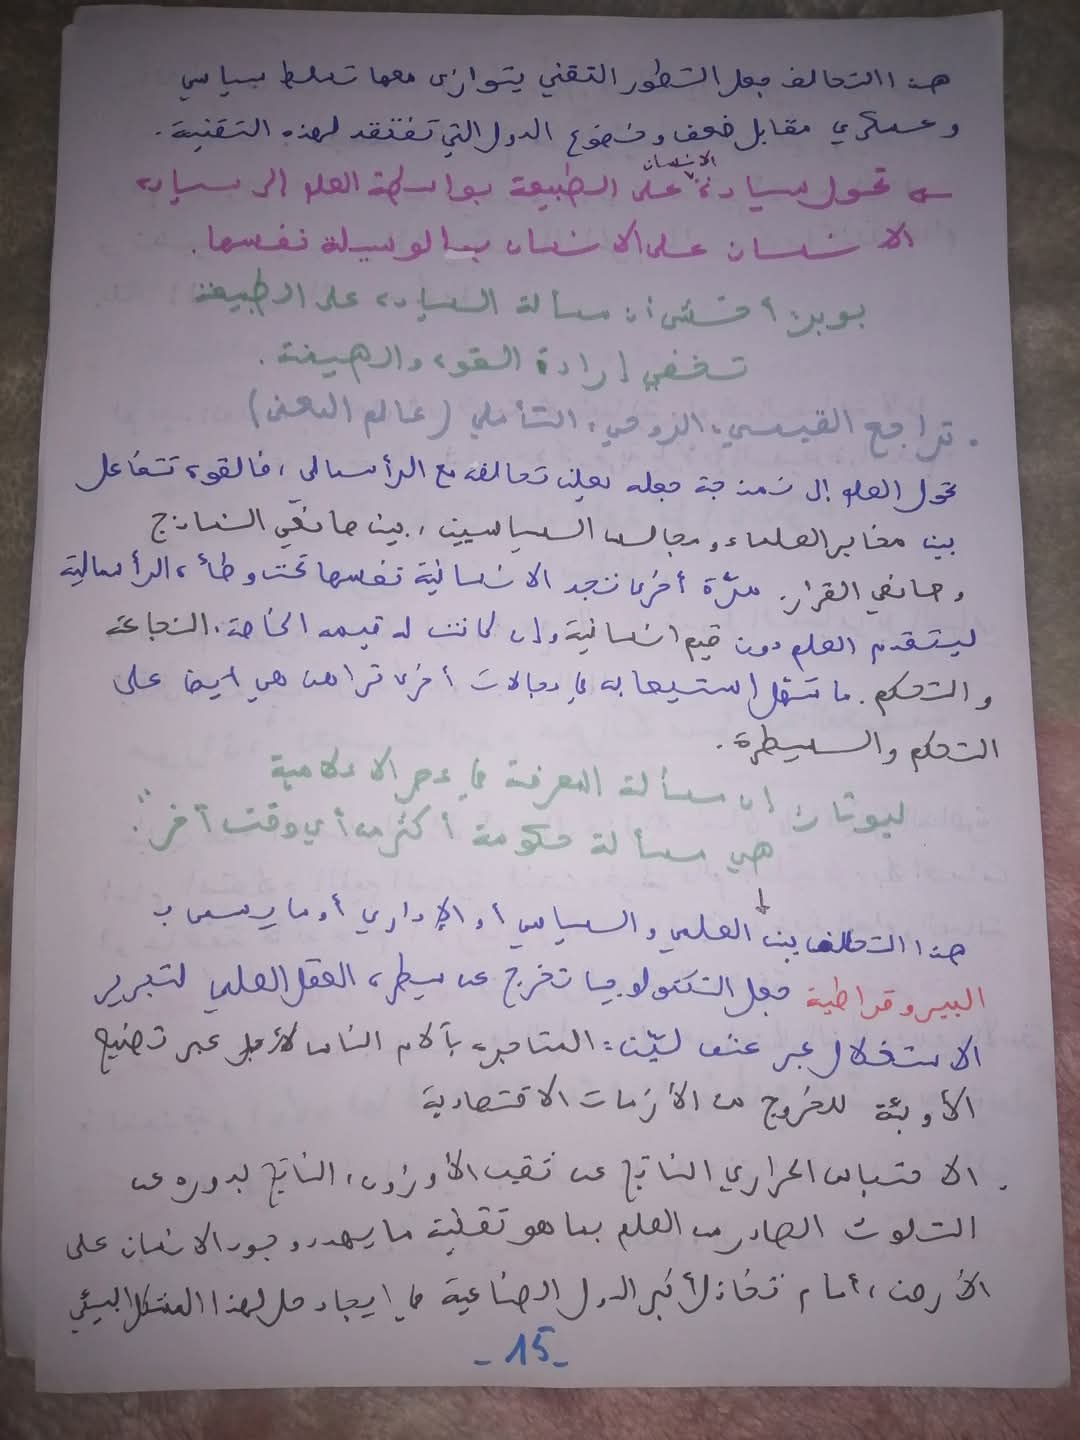 هذا التحالف جعل التطور التقني يتوازى معها تسلط سياسي
وعسكري مقابل ضعف وخضوع الدول التي تفتقد لهذه التقنية.
تحول سيادة الانسان على الطبيعة بواسطة العلم الى سيادة
الانسان على الانسان بالوسيلة نفسها.
بوبر: أخشى أن مسألة السيادة على الطبيعة
تخفي إرادة القوة والهيمنة.
. تراجع القيمي، الروحي، التأملي (عالم المعنى)
تحول العلم إلى نمذجة جعله يعلن تحالفه مع الرأسمالي، فالقوة تتفاعل
بين مخابر العلماء ومجالس السياسيين، بين صانعي النماذج
وصانعي القرار. مرّة أخرى نجد الانسانية نفسها تحت وطأة الرأسمالية
ليتقدم العلم دون قيم انسانية وان كانت له قيمه الخاصة، النجاعة
والتحكم. ما تم استيعابه في مجالات أخرى تراهن هي ايضا على
التحكم والسيطرة.
ليوتار: إن مسألة المعرفة في عصر الاعلامية
هي مسألة حكومة أكثر من أي وقت آخر".
↓
هذا التحالف بين العلمي والسياسي أو الإداري أو ما يسمى ب
البيروقراطية جعل التكنولوجيا تخرج عن سيطرة العقل العلمي لتبرير
الاستغلال عبر عنف ليّن: المتاجرة بآلام الناس لأجل عبر تصنيع
الأوبئة للخروج من الأزمات الاقتصادية
. الاحتباس الحراري الناتج عن ثقب الأوزون، الناتج بدوره عن
التلوث الصادر من العلم بما هو تقنية ما يهدد وجود الانسان على
الأرض، أمام تخاذل أكبر الدول الصناعية في ايجاد حل لهذا المشكل البيئي
- 15 -